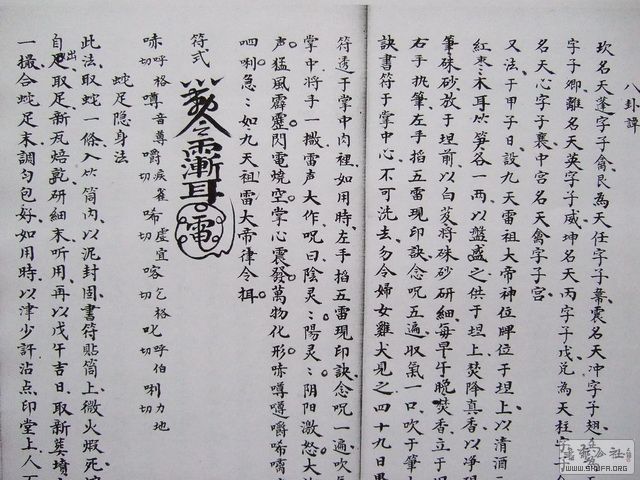 八卦諱
坎名天蓬字子禽艮為天任字子葉震名天冲字子翘
字子卿離名天英字子威坤名天丙字子戌兑為天柱字子
名天心字子襄中宫名天禽字子宫
又法于甲子日設九天雷祖大帝神位牌位于坦上以清酒
紅枣木耳竹笋各一两以盤盛之供于坦上焚降真香以净
筆硃砂放于坦前以白芨将硃砂研細每早午晚焚香立于
右手执筆左手掐五雷現印訣念呪五遍取氣一口吹于筆
訣書符于掌中心不可洗去勿令婦女雞犬見之四十九日
符透于掌中肉裡如用時左手掐五雷現印訣念呪一遍吹
掌中将手一撒雷声大作呪曰陰灵:陽灵:阴阳激怒大
声猛風霹靂閃電燒空掌心震發萬物化形味噂噂嚼唏
呬唎急:如九天祖雷大帝律令揖
符式
呼格切 噂音尊 嚼疾雀切 唏虚宜切 喀乞格切 叱呼伯切 唎力地切
蛇足隐身法
此法取蛇一條入竹筒内以泥封固書符貼筒上微火煅死
自出足取足新瓦焙乾研細末听用再以戊午吉日取新葬墳
一撮合蛇足末調匀包好如用時以津少許沾点印堂上人
書法公社
WWW.SHUFA.ORG